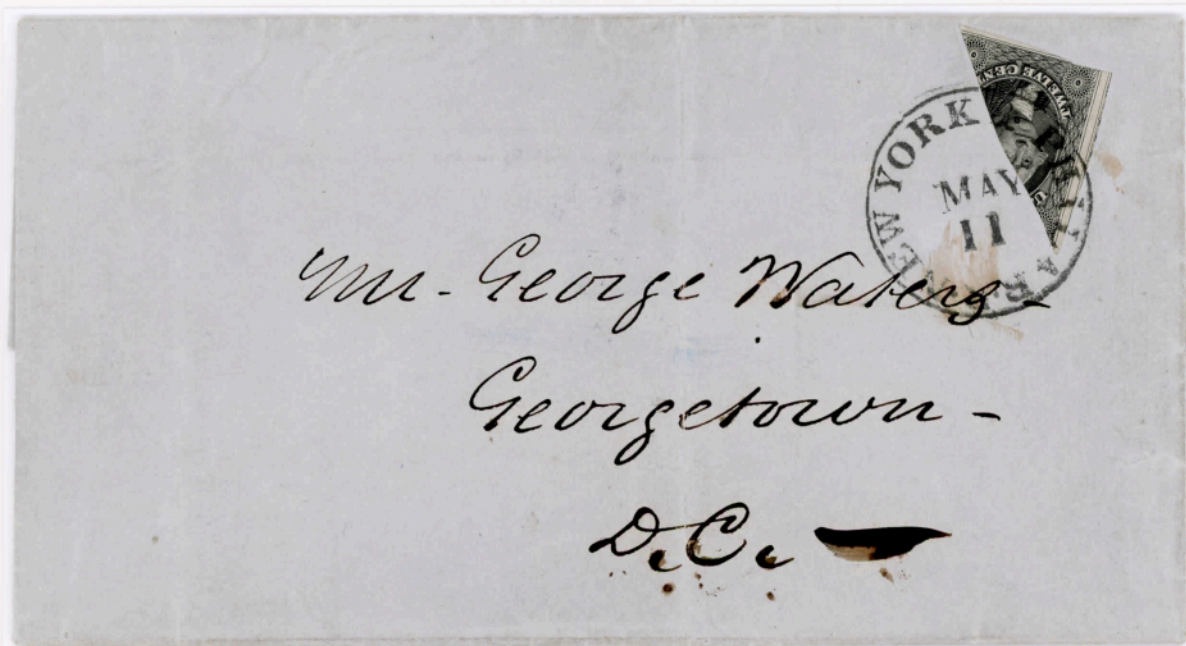 TWELVE CEN
NEW YORK
MAY
11
Mr. George Waters -
Georgetown -
D.C.